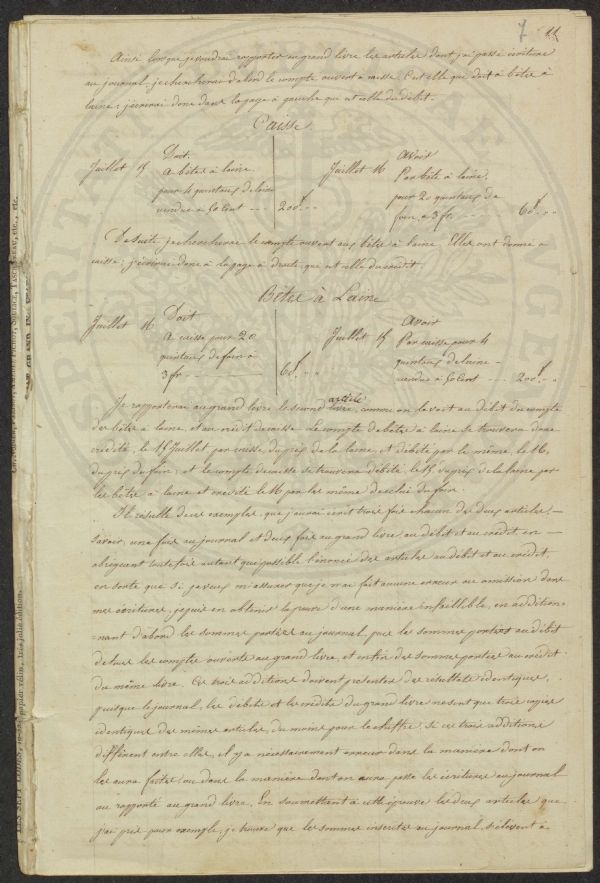 7 11
Ainsi lorsque je voudrai rapporter au grand livre les articles dont j'ai passé écriture
au journal, je chercherai d'abord le compte ouvert à caisse. C'est elle qui doit à bêtes à
laine; j'écrirai donc dans la page à gauche qui est celle du débit.
Caisse
Juillet 15 Doit
A bêtes à laine
pour 4 quintaux de laine
vendue à 50 Cent --- 200f " "
Juillet 16 Avoir
Par bête à laine,
pour 20 quintaux de
foin, à 3 fr. --- 60f " "
De suite, je chercherai le compte ouvert aux bêtes à laine. Elles ont donné à
caisse; j'écrirai donc à la page à droite, qui est celle du crédit.
Bêtes à Laine
Juillet 16 Doit
A caisse pour 20
quintaux de foin à
3 fr --- 60f " "
Juillet 15 Avoir
Par caisse pour 4
quintaux de laine -
vendue à 50 Cent --- 200f " "
Je rapporterai au grand livre le second article, comme on le voit au débit du compte
des bêtes à laine, et au crédit de caisse. Le compte de bêtes à laine se trouvera donc
crédité, le 15 Juillet par caisse du prix de la laine, et débité par le même, le 16,
du prix du foin; et le compte de caisse se trouvera débité le 15 du prix de la laine par
les bêtes à laine et crédité le 16 par les même de celui du foin.
Il résulte de ces exemples, que j'aurai écrit trois fois chacun des deux articles, -
Savoir, une fois au journal et deux fois au grand livre au débit et au crédit, en -
abrégeant toutefois autant que possible l'énoncé des articles au débit et au crédit,
en sorte que si je veux m'assurer que je n'ai fait aucune erreur ou omission dans
mes écritures, je puis en obtenir la preuve d'une manière infaillible, en addition=
=nant d'abord les sommes portées au journal, puis les sommes portées au débit
de tous les comptes ouverts au grand livre, et enfin des sommes portées au crédit
du même livre. Ces trois additions doivent présenter des résultats identiques,
puisque le journal, les débits et les crédits du grand livre ne sont que trois copies
identiques des mêmes articles, du moins pour le chiffre; si ces trois additions
diffèrent entre elles, il y a nécessairement erreur dans la manière dont on
les aura faites ou dans la manière dont on aura passé les écritures au journal
ou rapporté au grand livre. En soumettant à cette épreuve les deux articles que
j'ai pris pour exemple, je trouve que les sommes inscrites au journal, s'élèvent à